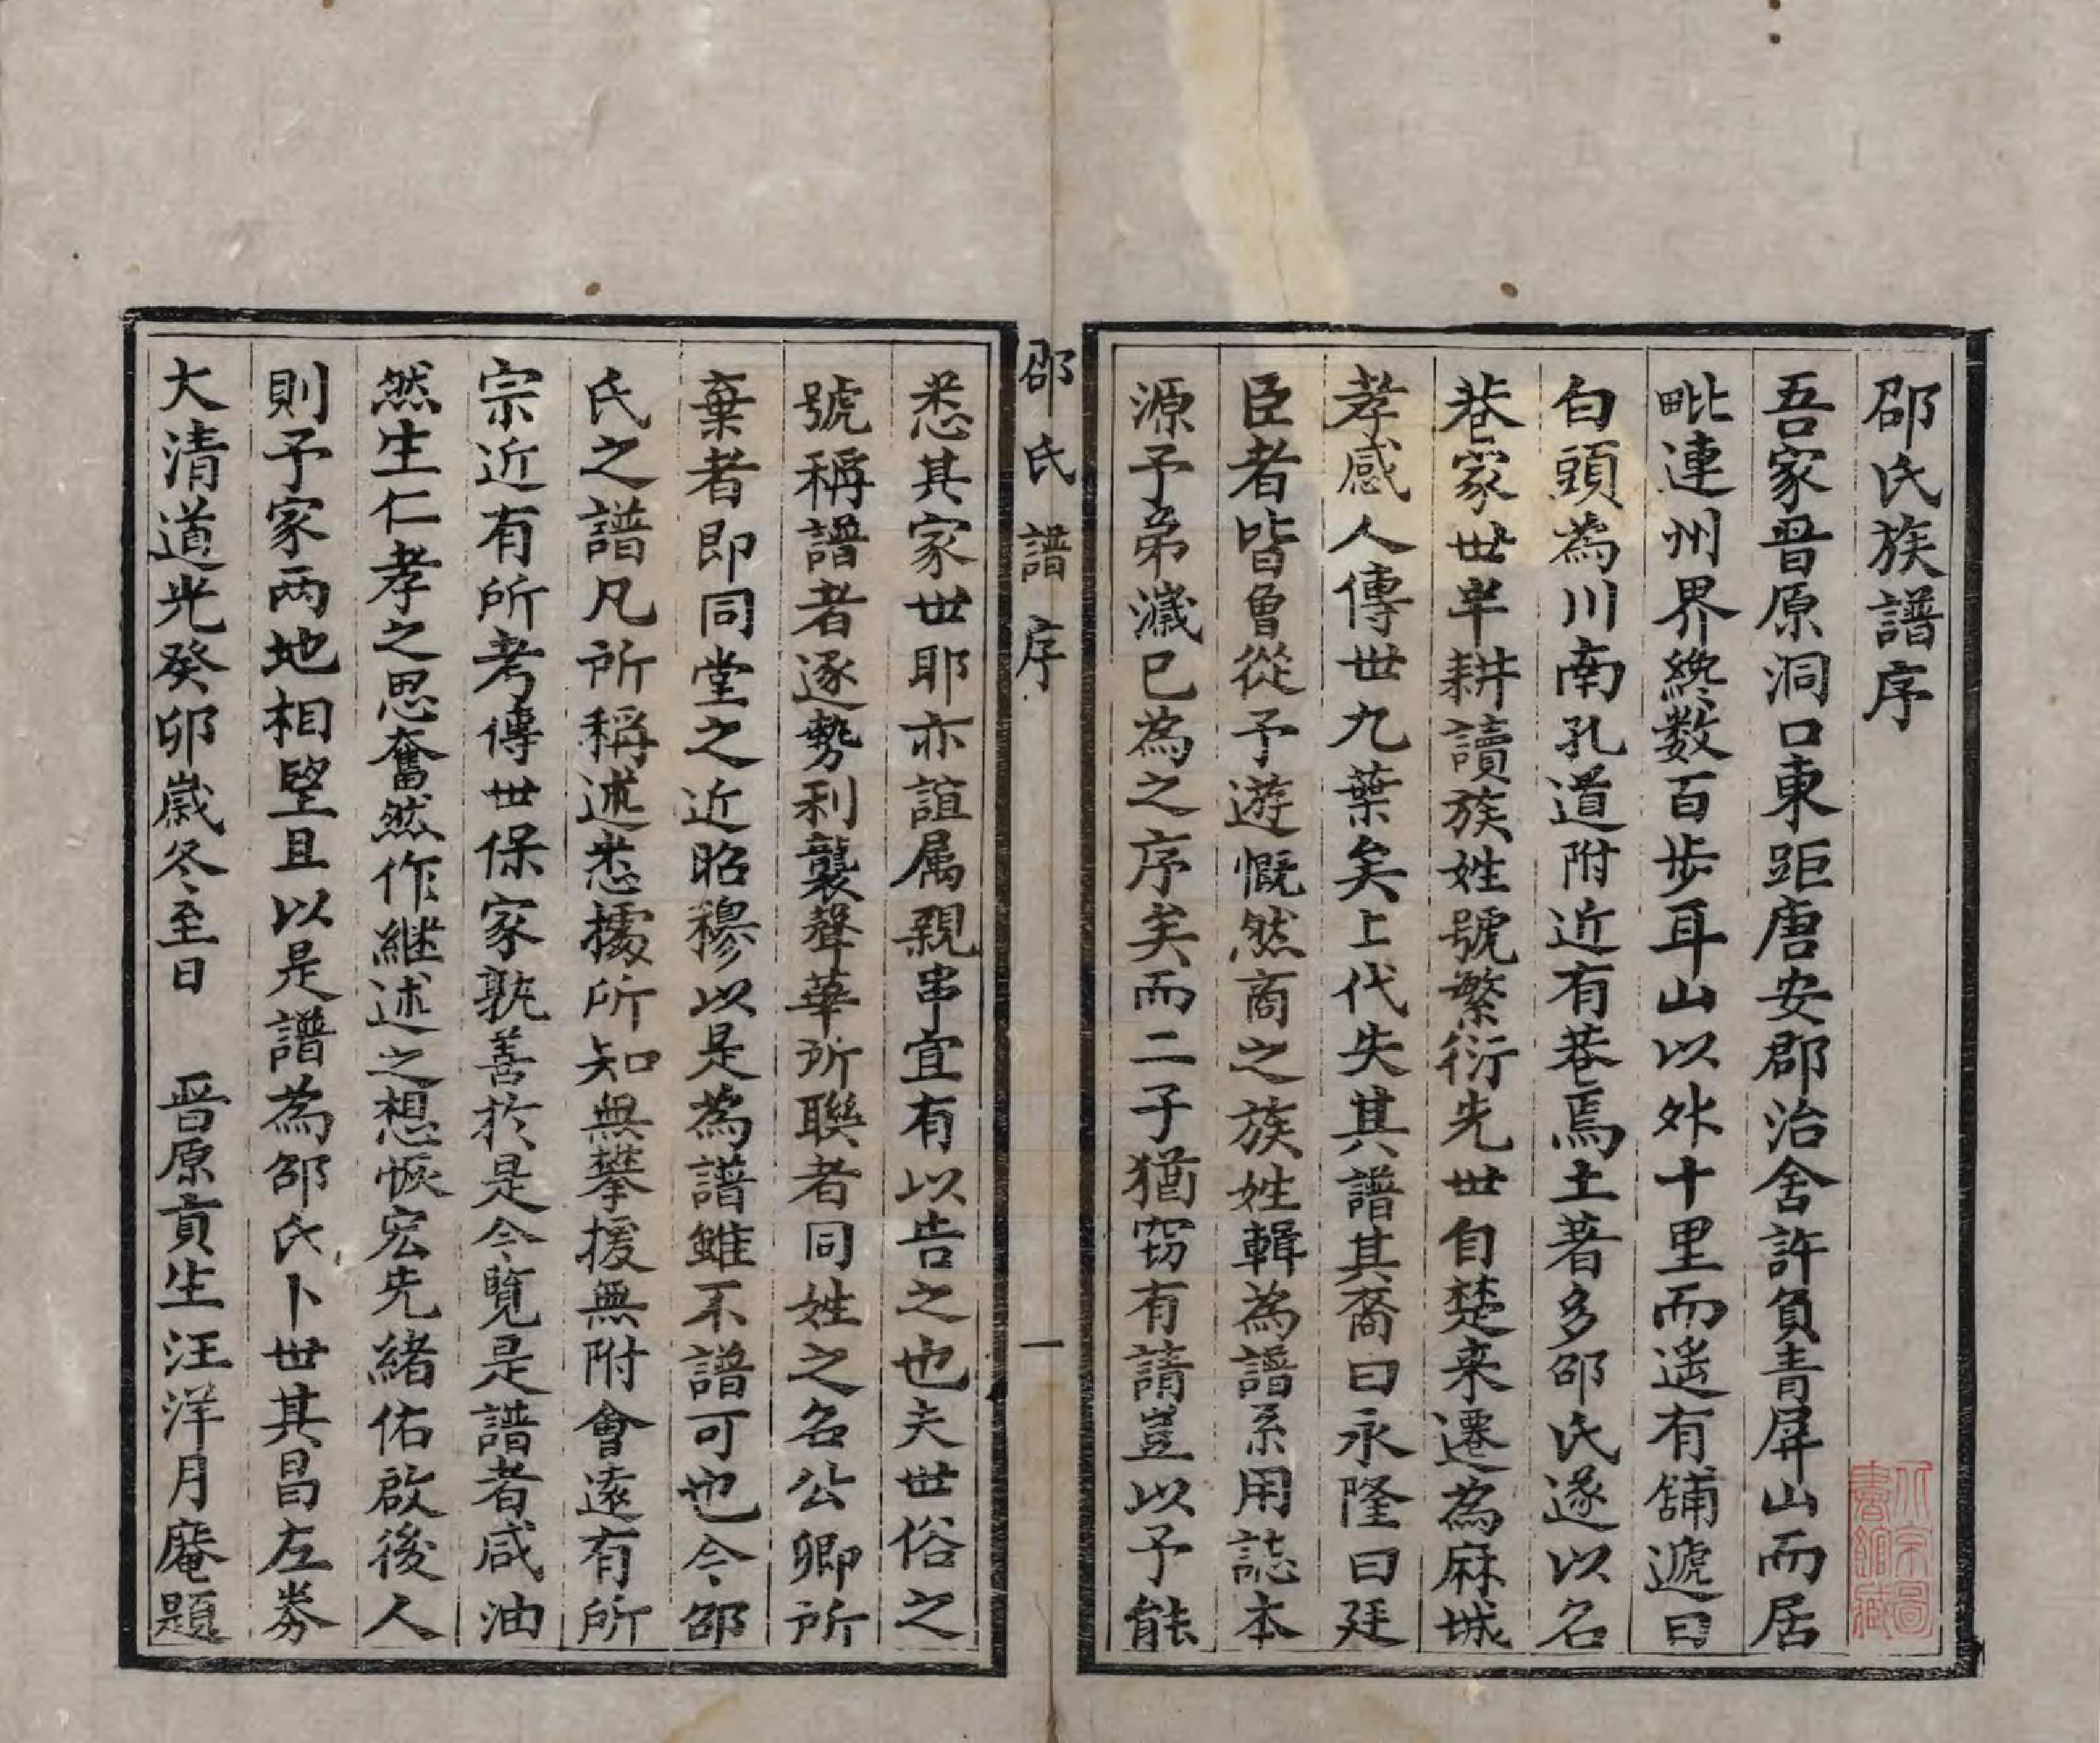 邵氏族譜序
吾家晋原洞口東距唐安郡治舍許負青屏山而居
毗連州界纔数百步耳山以外十里而遙有舖遞曰
白頭為川南孔道附近有巷焉土著多邵氏遂以名
巷家世半耕讀族姓號繁衍先世自楚来遷為麻城
孝感人傳世九葉矣上代失其譜其裔曰永隆曰廷
臣者皆曾從予遊慨然商之族姓輯為譜系用誌本
源予弟瀛已為之序矣而二子猶窃有請豈以予能
邵氏譜序
一
悉其家世耶亦誼属親串宜有以告之也夫世俗之
號稱譜者逐勢利襲聲華所聯者同姓之名公卿所
棄者即同堂之近昭穆以是為譜雖不譜可也今邵
氏之譜凡所稱述悉據所知無攀援無附會遠有所
宗近有所考傳世保家孰善於是今覧是譜者咸油
然生仁孝之思奮然作継述之想恢宏先緒佑啟後人
則予家两地相望且以是譜為邵氏卜世其昌左券
大清道光癸卯歲冬至日　晋原貢生汪洋月庵題